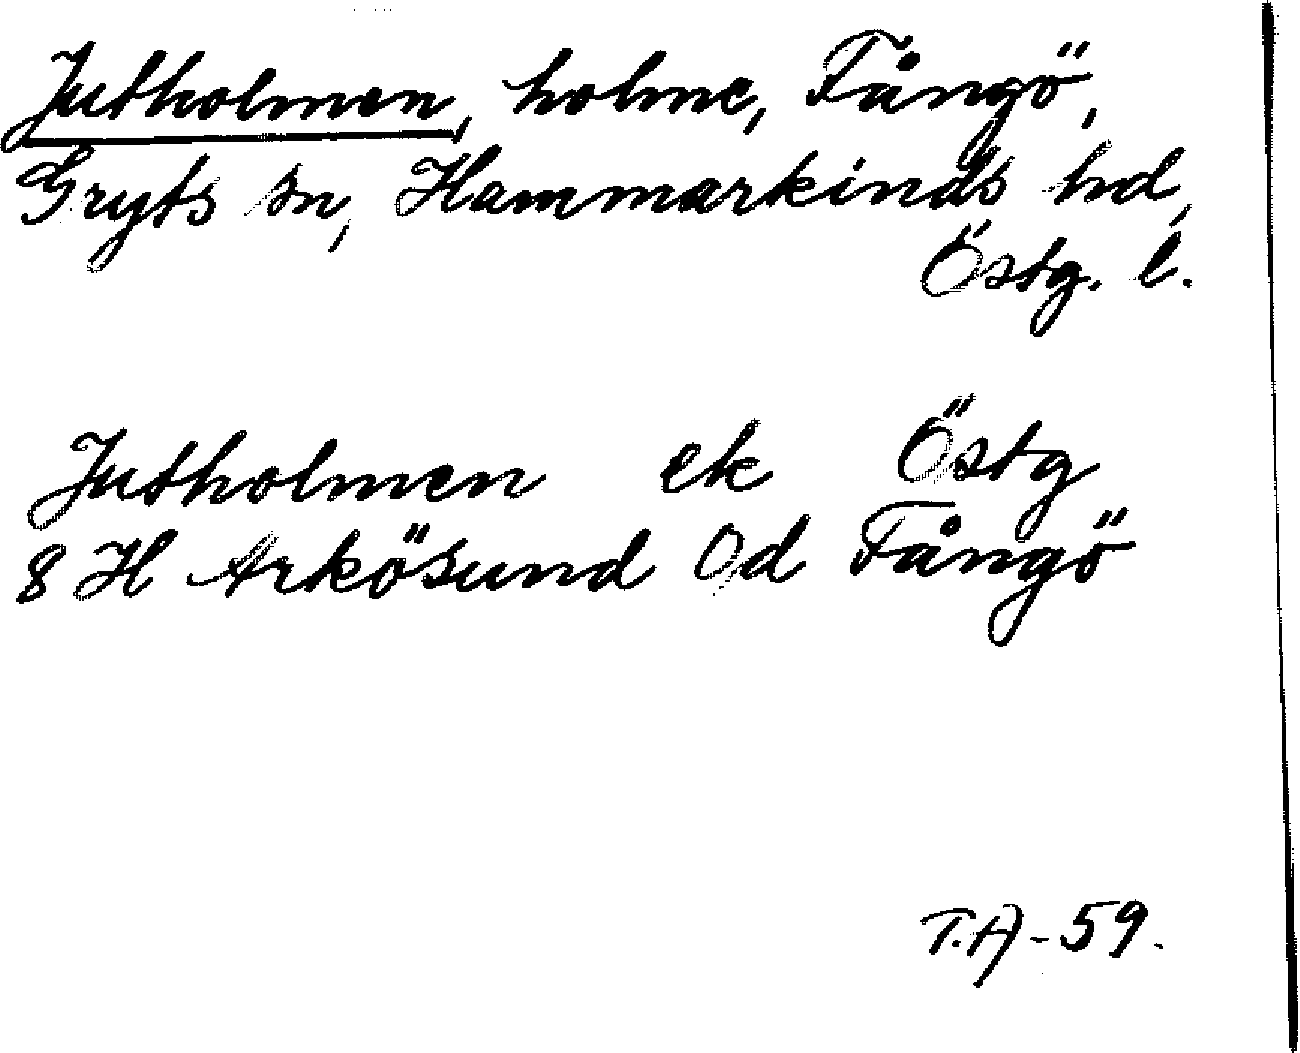 Jutholmen, holme, Fångö,
Gryts sn, Hammarkinds hd,
Östg. l.
Jutholmen ek Östg
8 H Arkösund Od Fångö
T.A-59.